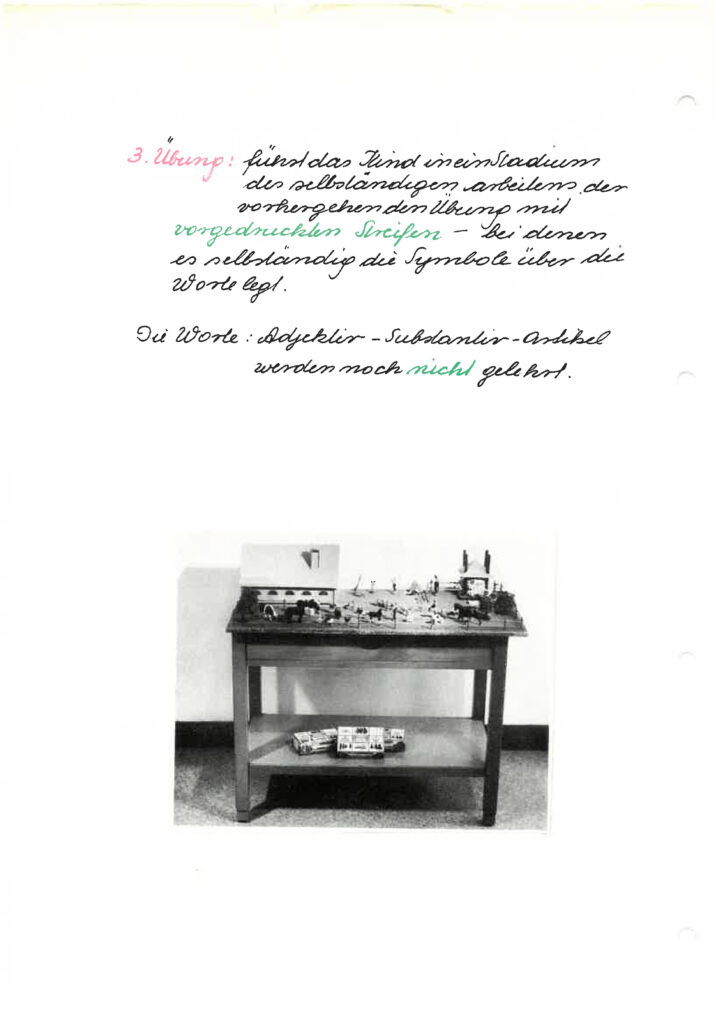 3. Übung: führt das Kind in ein Stadium
des selbständigen arbeitens, der
vorhergehenden Übung mit
vorgedruckten Streifen – bei denen
es selbständig die Symbole über die
Worte legt.
Die Worte: Adjektiv – Substantiv – Artikel
werden noch nicht gelehrt.